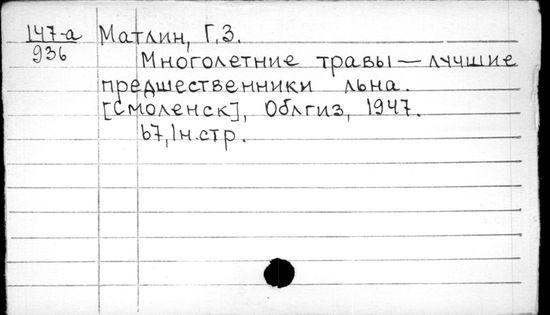 147-а Матлин, Г.З.
936
Многолетние травы — лучшие
предшественники льна.
[Смоленск], Облгиз, 1947.
67, 1н.стр.